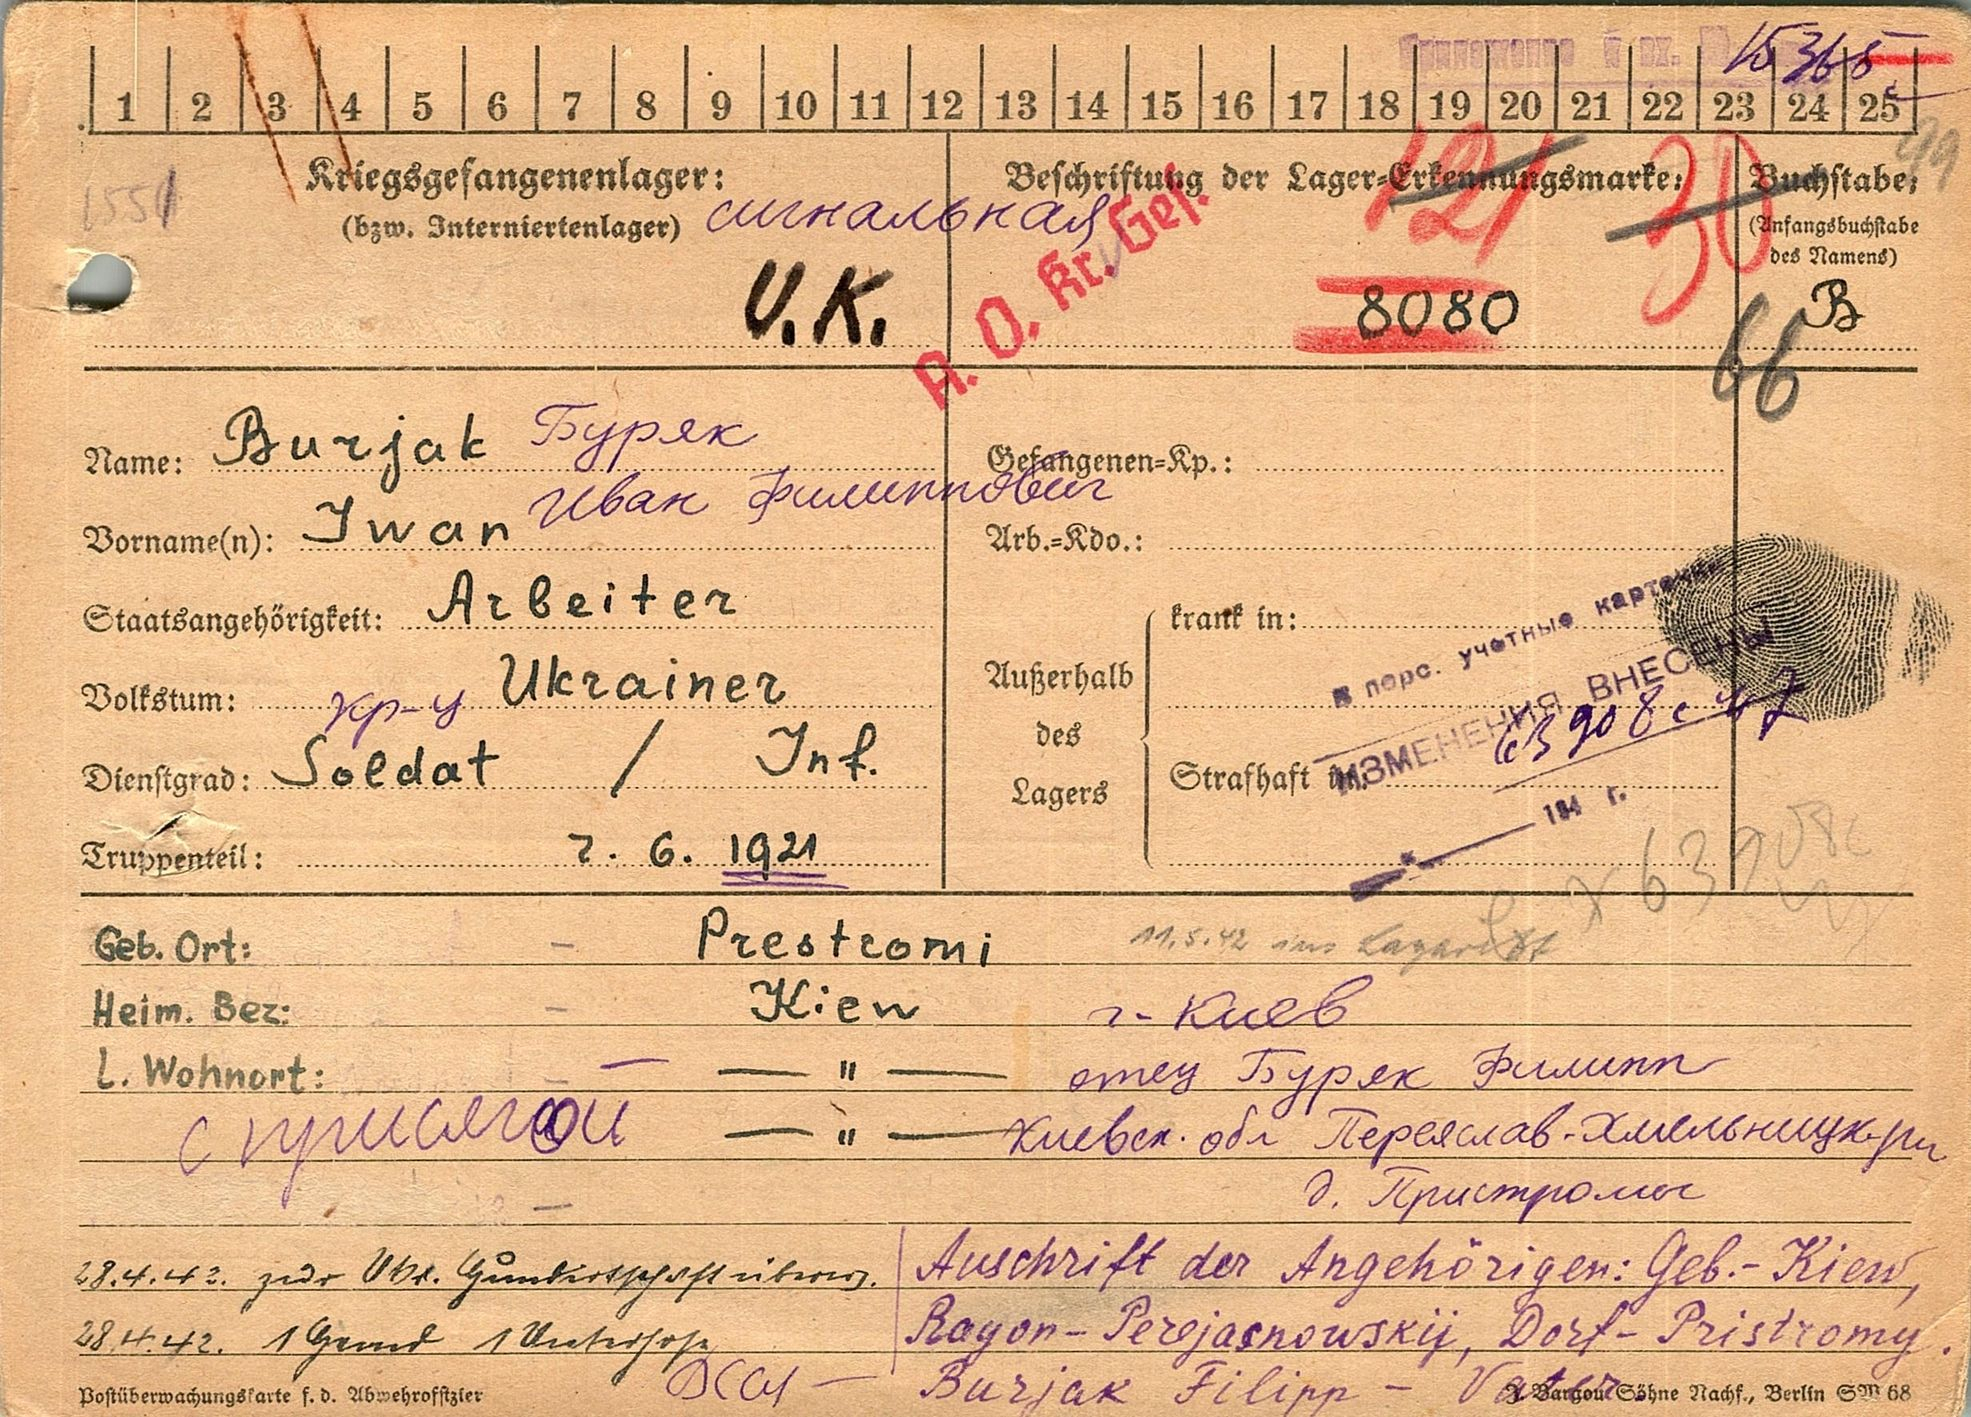 Приложение к вх. № 15365
1 2 3 4 5 6 7 8 9 10 11 12 13 14 15 16 17 18 19 20 21 22 23 24 25
1551
Kriegsgefangenenlager:
(bzw. Interniertenlager)
сигнальная
V.K.
A. O. Kr. Gef.
Beschriftung der Lager=Erkennungsmarke:
121 30
8080
Buchstabe:
(Anfangsbuchstabe
des Namens)
B
66
Name: Burjak Буряк
Иван Филиппович
Vorname(n): Iwan
Staatsangehörigkeit: Arbeiter
Volkstum: Ukrainer
кр-ц
Dienstgrad: Soldat / Inf.
Truppenteil: 7. 6. 1921
Gefangenen=Kp.:
Arb.=Kdo.:
Außerhalb
des
Lagers
krank in:
Strafhaft in:
В перс. учетные карточки
ИЗМЕНЕНИЯ ВНЕСЕНЫ
63908с 47
194 г.
63908с
Geb. Ort: – Prestromi 11.5.42 ins Lazarett
Heim. Bez: – Kiew г. Киев
L. Wohnort: — " — отец Буряк Филипп
с присягой — " — Киевск. обл Переяслав-Хмельницк. рн
д. Пристромы
28.4.42. zur Ukr.
28.4.42. 1 Hemd 1 Unterhose
Auschrift der Angehörigen: Geb.- Kiew,
Rayon- Perejasnowskij, Dorf- Pristromy.
Burjak Filipp - Vater.
Postüberwachungskarte f. d. Abwehroffizier
Söhne Nachf., Berlin SW 68